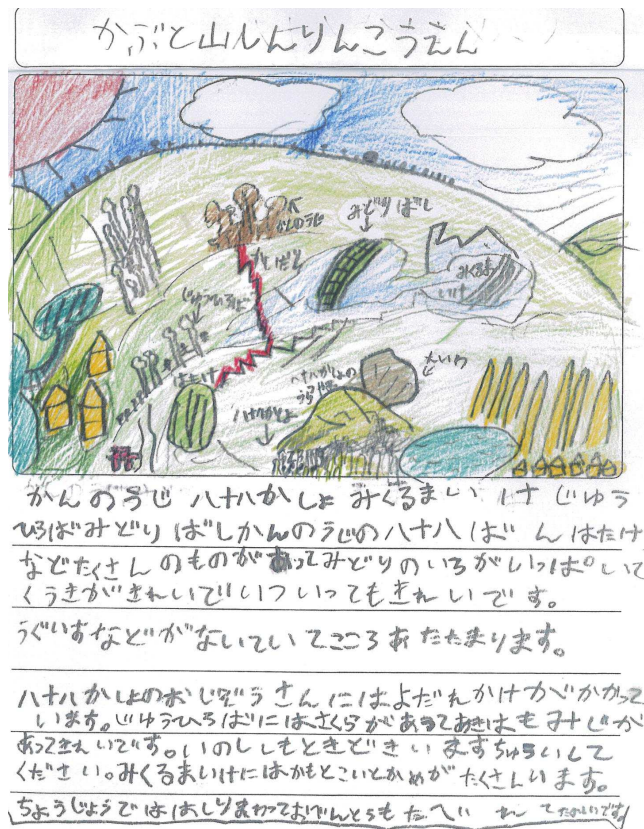 かぶと山しんりんこうえん
かんのうじ
みどりばし
かいだん
みくるま
いけ
じゆうひろば
はたけ
八十八かしょの
うら
八十八かしょ
大いわ
かんのうじ 八十八かしょ みくるまいけ じゆう
ひろばみどりばしかんのうじの八十八ばんはたけ
などたくさんのものがあってみどりのいろがいっぱいで
くうきがきれいでいついってもきれいです。
うぐいすなどがないていてこころあたたまります。
八十八かしょのおじぞうさんにはよだれかけがかかって
います。じゆうひろばにはさくらがあってあきはもみじが
あってきれいです。いのししもときどきいますちゅういして
ください。みくるまいけにはかもとこいとかめがたくさんいます。
ちょうじょうでははしりまわっておべんとうもたべれてたのしいです